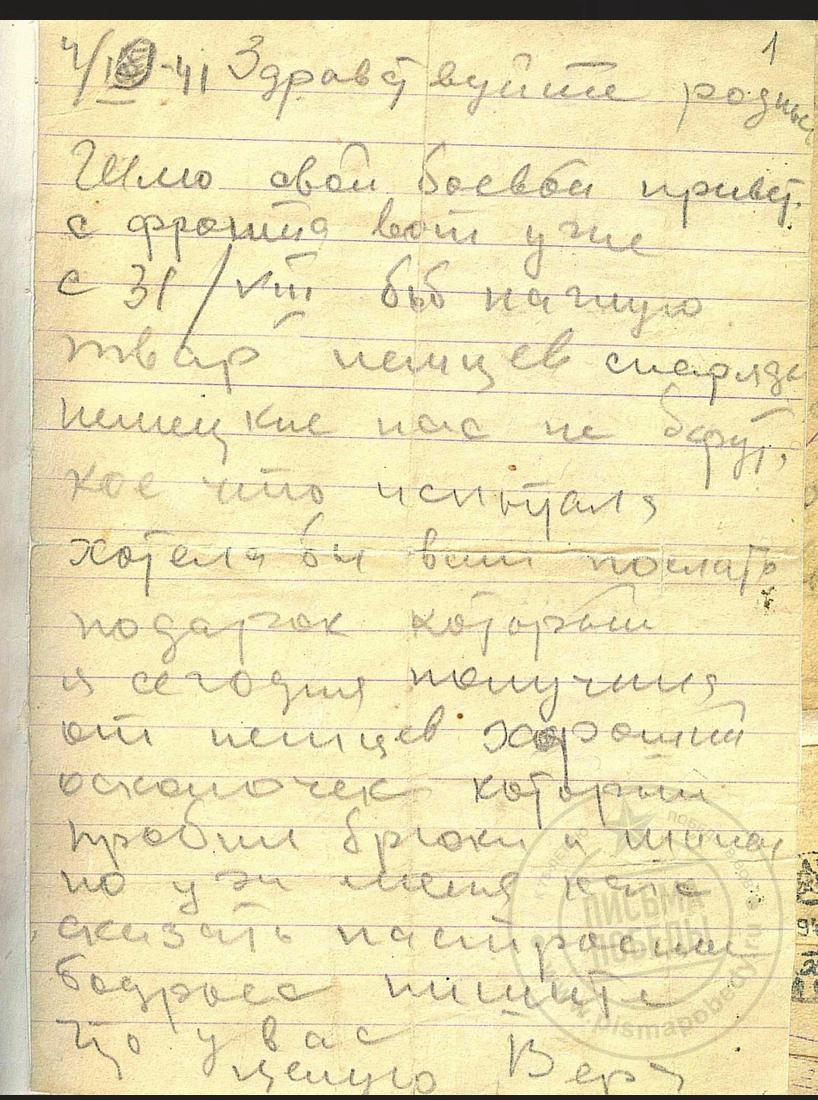 1
4/IX-41 Здравствуйте родные
Шлю свой боевой привет
с фронта вот уже
с 31/VIII бью
тварь немцев снаряды
немецкие нас не берут,
кое что испытала
хотела бы вам послать
подарок который
я сегодня получила
от немцев хороший
осколочек который
пробил брюки и
но
сказать настроение
бодрое пишите
что у вас
целую Вера
ПИСЬМА
ПОБЕДЫ
www.pismapobedy.ru